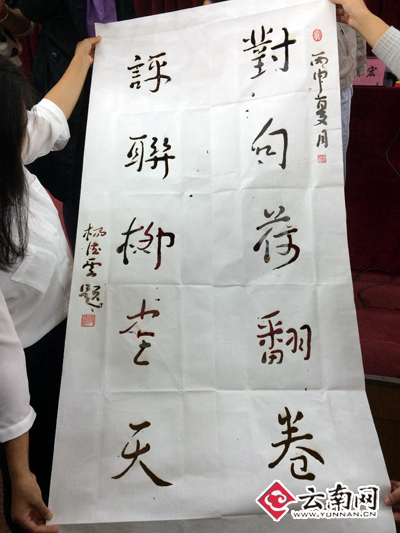 丙申夏月
對句荷翻卷
評聯柳天
楊德雲題
宏
云南网
WWW.YUNNAN.CN